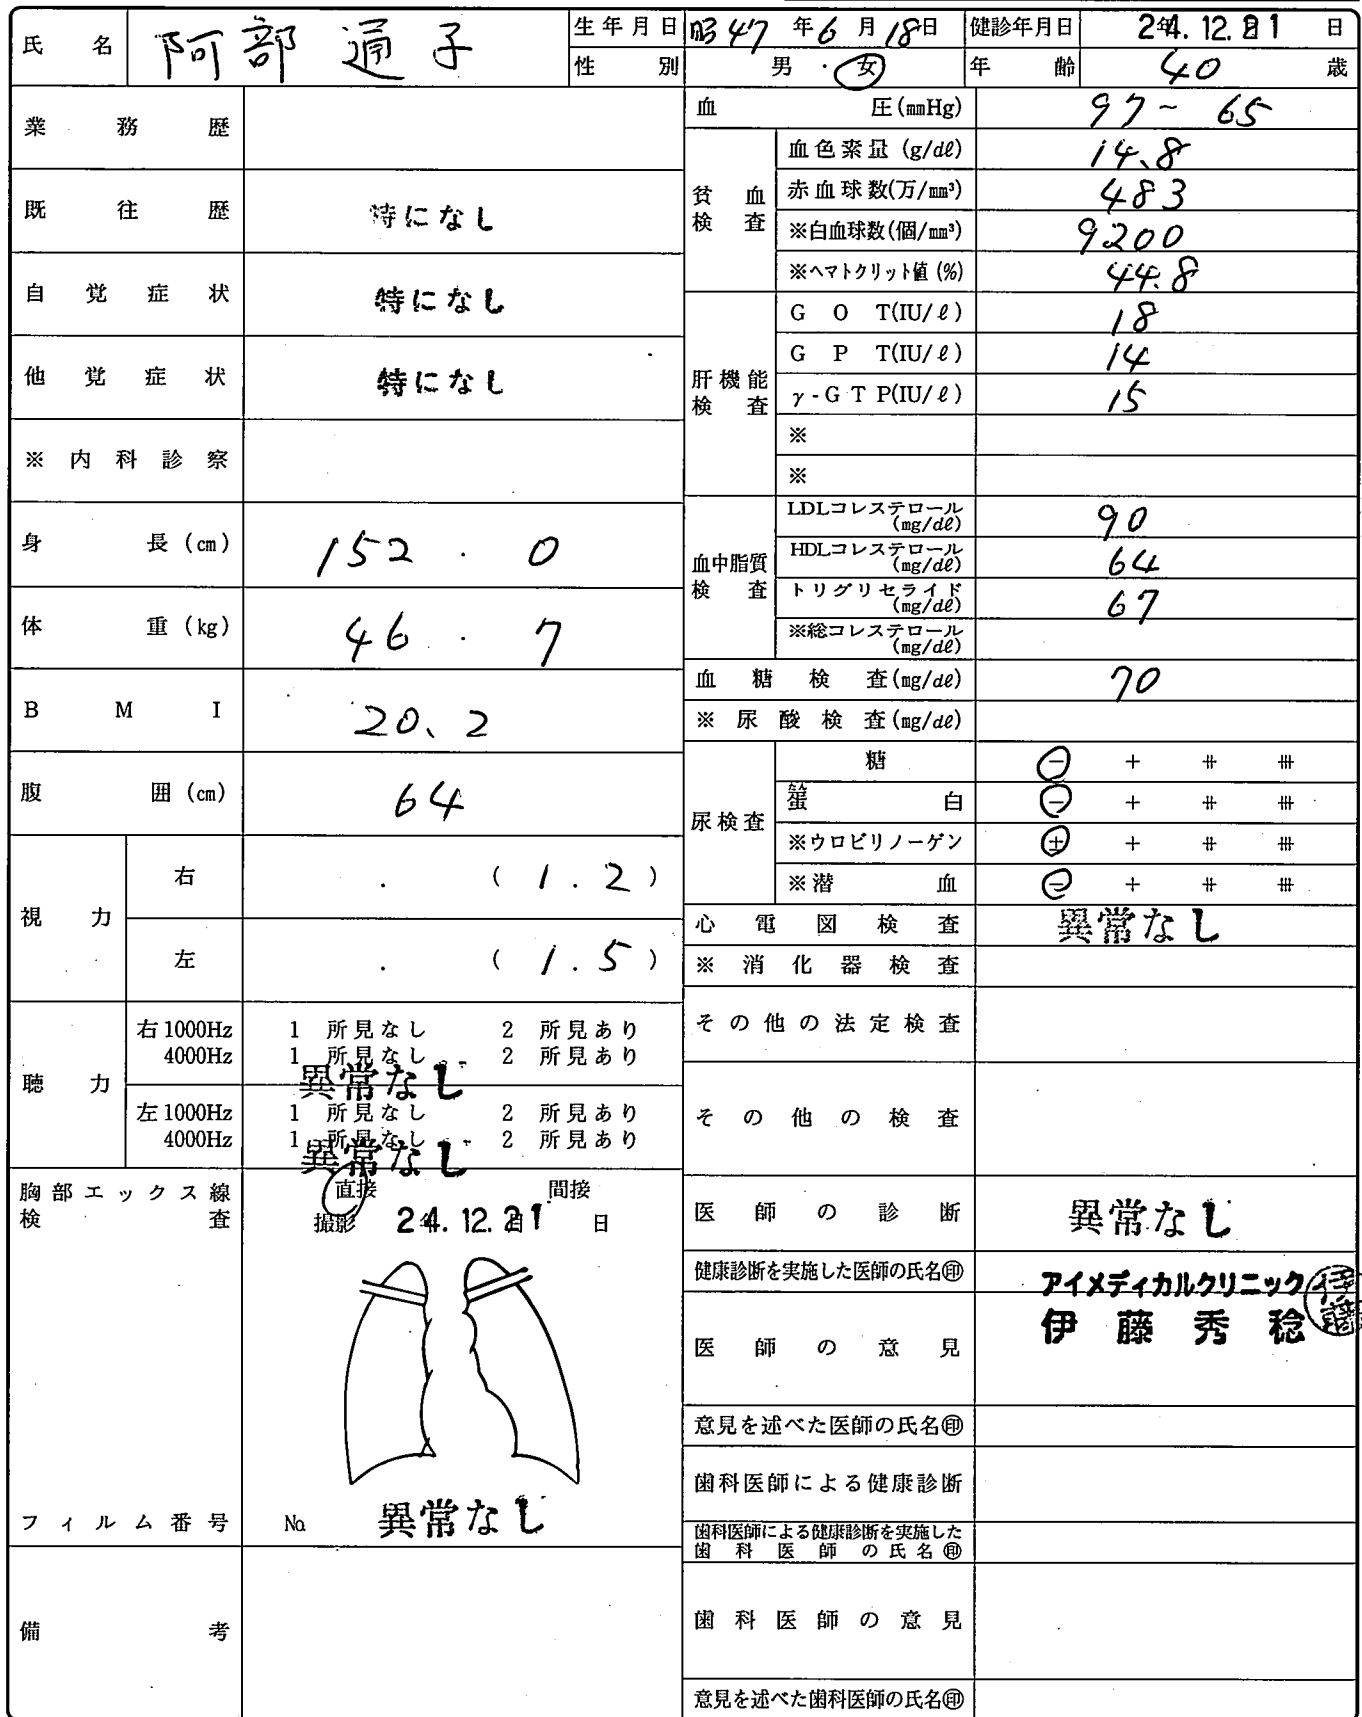 氏名 阿部 通子 生年月日 昭47年6月18日 健診年月日 24.12.21日
性別 男・女 年齢 40歳
業務歴
既往歴 特になし
自覚症状 特になし
他覚症状 特になし
※内科診察
身長(cm) 152.0
体重(kg) 46.7
BMI 20.2
腹囲(cm) 64
視力 右 . (1.2)
左 . (1.5)
聴力 右1000Hz 1 所見なし 2 所見あり
4000Hz 1 所見なし 2 所見あり
異常なし
左1000Hz 1 所見なし 2 所見あり
4000Hz 1 所見なし 2 所見あり
異常なし
胸部エックス線検査 直接 間接
撮影 24.12.21日
フィルム番号 No. 異常なし
備考
血圧(mmHg) 97~65
貧血検査 血色素量(g/dℓ) 14.8
赤血球数(万/mm³) 483
※白血球数(個/mm³) 9200
※ヘマトクリット値(%) 44.8
肝機能検査 GOT(IU/ℓ) 18
GPT(IU/ℓ) 14
γ-GTP(IU/ℓ) 15
※
※
血中脂質検査 LDLコレステロール(mg/dℓ) 90
HDLコレステロール(mg/dℓ) 64
トリグリセライド(mg/dℓ) 67
※総コレステロール(mg/dℓ)
血糖検査(mg/dℓ) 70
※尿酸検査(mg/dℓ)
尿検査 糖 − + ⧺ ⧻
蛋白 − + ⧺ ⧻
※ウロビリノーゲン ± + ⧺ ⧻
※潜血 − + ⧺ ⧻
心電図検査 異常なし
※消化器検査
その他の法定検査
その他の検査
医師の診断 異常なし
健康診断を実施した医師の氏名㊞ アイメディカルクリニック
伊藤秀稔 伊藤
医師の意見
意見を述べた医師の氏名㊞
歯科医師による健康診断
歯科医師による健康診断を実施した
歯科医師の氏名㊞
歯科医師の意見
意見を述べた歯科医師の氏名㊞